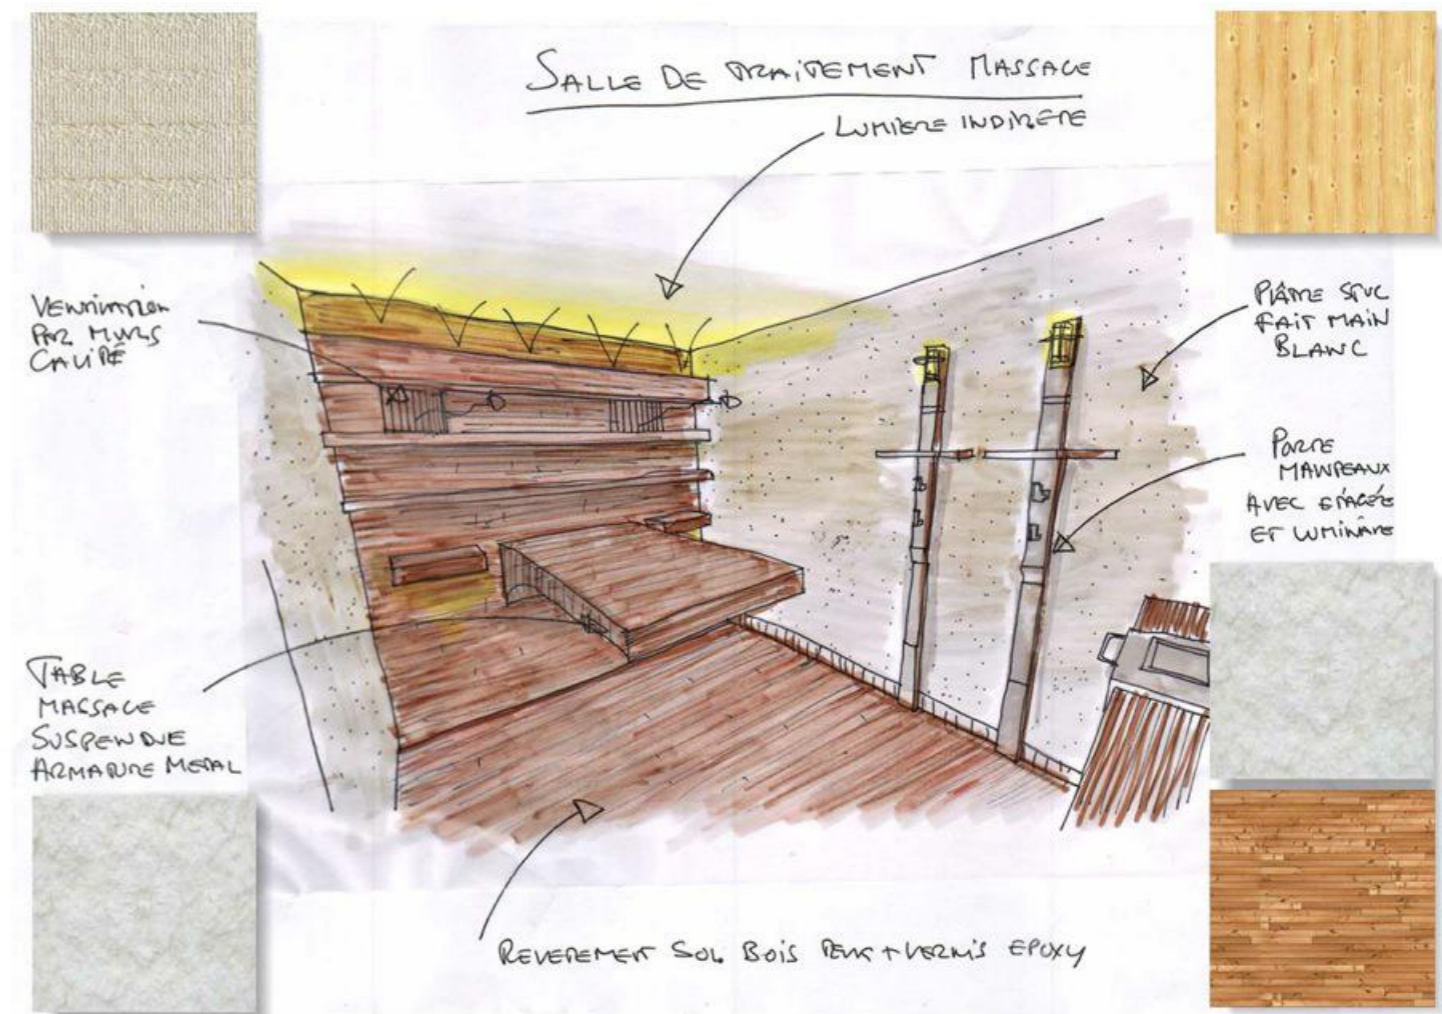 SALLE DE TRAITEMENT MASSAGE
LUMIERE INDIRECTE
VENTILATION
PAR MURS
PLÂTRE STUC
FAIT MAIN
BLANC
PORTE
MANTEAUX
AVEC ETAGÈRE
ET LUMINAIRE
TABLE
MASSAGE
SUSPENDUE
ARMATURE METAL
REVETEMENT SOL BOIS + VERNIS EPOXY